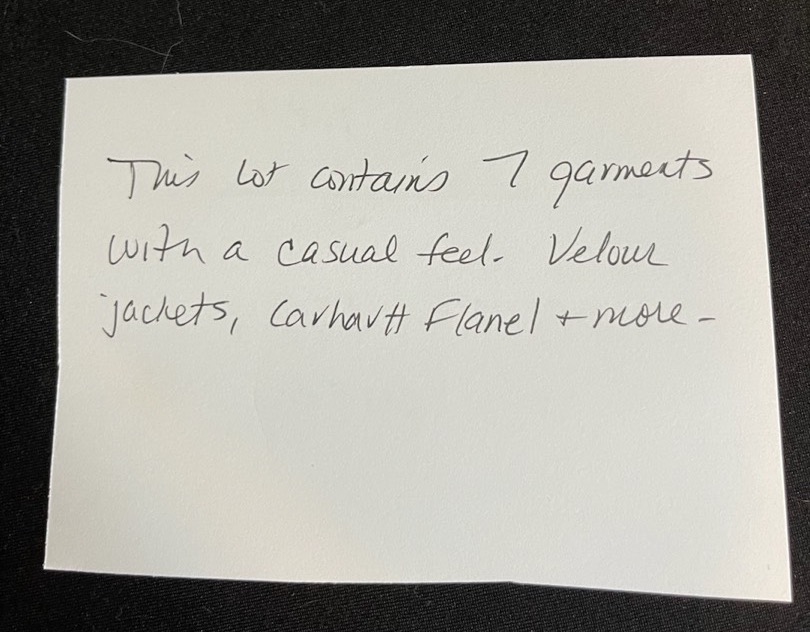 This lot contains 7 garments
with a casual feel. Velour
jackets, Carhartt Flanel + more -